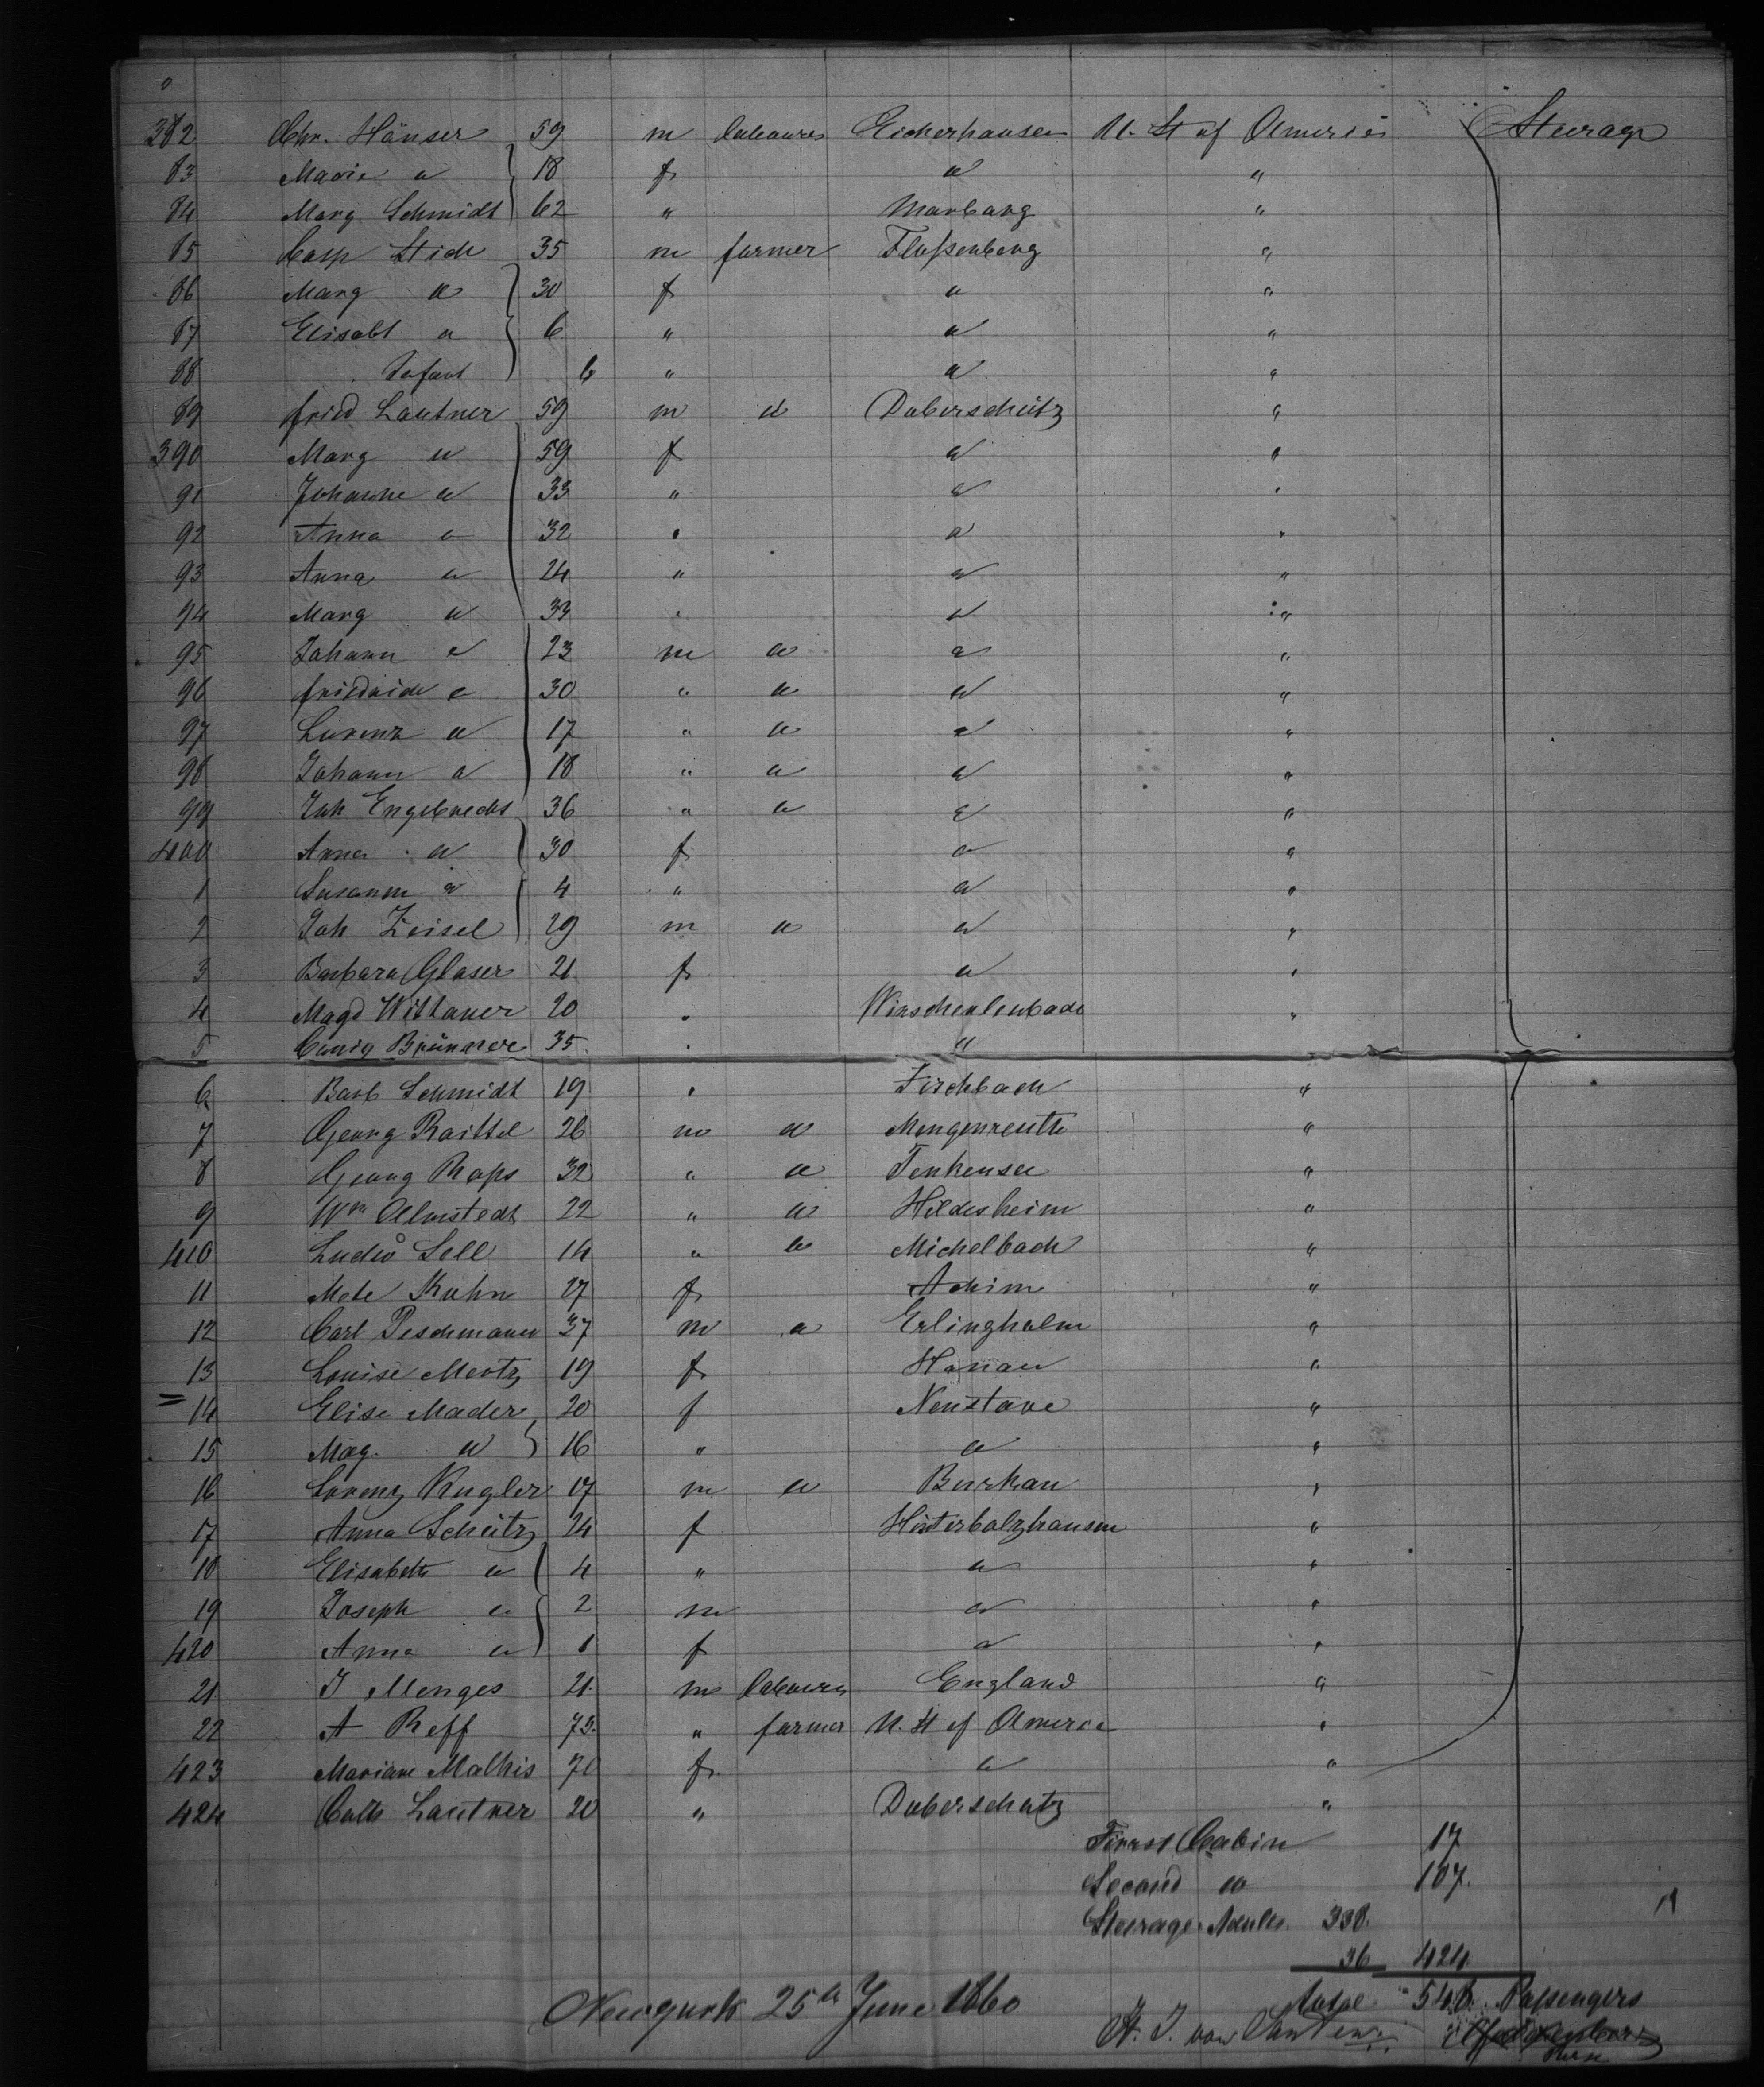 382 Chr. Hänser 59 m labourer Eickerhausen U. St of America Steerage
83 Marie " 18 f " "
84 Marg Schmidt 62 " Marbarg "
85 Casp Stich 35 m farmer Floßenberg "
86 Marg " 30 f " "
87 Elisabt " 6 " " "
88 Infant 6 " " "
89 Fried Lautner 59 m " Doberschütz "
390 Marg " 59 f " "
91 Johanne " 33 " " "
92 Anna " 32 " " "
93 Anna " 24 " " "
94 Marg " 33 " " "
95 Johann " 23 m " " "
96 Friedrich " 30 " " " "
97 Lorenz " 17 " " " "
98 Johann " 18 " " " "
99 Joh Engelbrecht 36 " " " "
400 Anna " 30 f " "
1 Susanne " 4 " " "
2 Joh Zeisel 29 m " " "
3 Barbara Glaser 21 f " "
4 Magd Wittauer 20 " "
5 Brünner 35 " "
6 Barb Schmidt 19 " Fischbach "
7 Georg Raittel 26 m " Mengenreuth "
8 Georg Raps 32 " " "
9 Wm Ollmstedt 22 " " Hildesheim "
410 Ludw Sell 14 " " Michelbach "
11 Mete Kuhn 27 f Achim "
12 Carl Peschmann 37 m " Erlingholm "
13 Louise Mertz 19 f Hanau "
14 Elise Mader 20 f "
15 Mag. " 16 " " "
16 Lorenz Kugler 17 m " Burkau "
17 Anna Schütz 24 f Hinterbolzhausen "
18 Elisabeth " 4 " " "
19 Joseph " 2 m " "
420 Anna " 1 f " "
21 J Menges 21. m labourer England "
22 A Reff 73. " farmer U. St of America "
423 Mariane Mathis 70 f. " "
424 Cath Lautner 20 " Doberschutz "
First Cabin 17
Second " 107.
Steerage Adults. 338.
36 424
Total 548. Passengers
Newyork 25th June 1860
H. J. von Santen